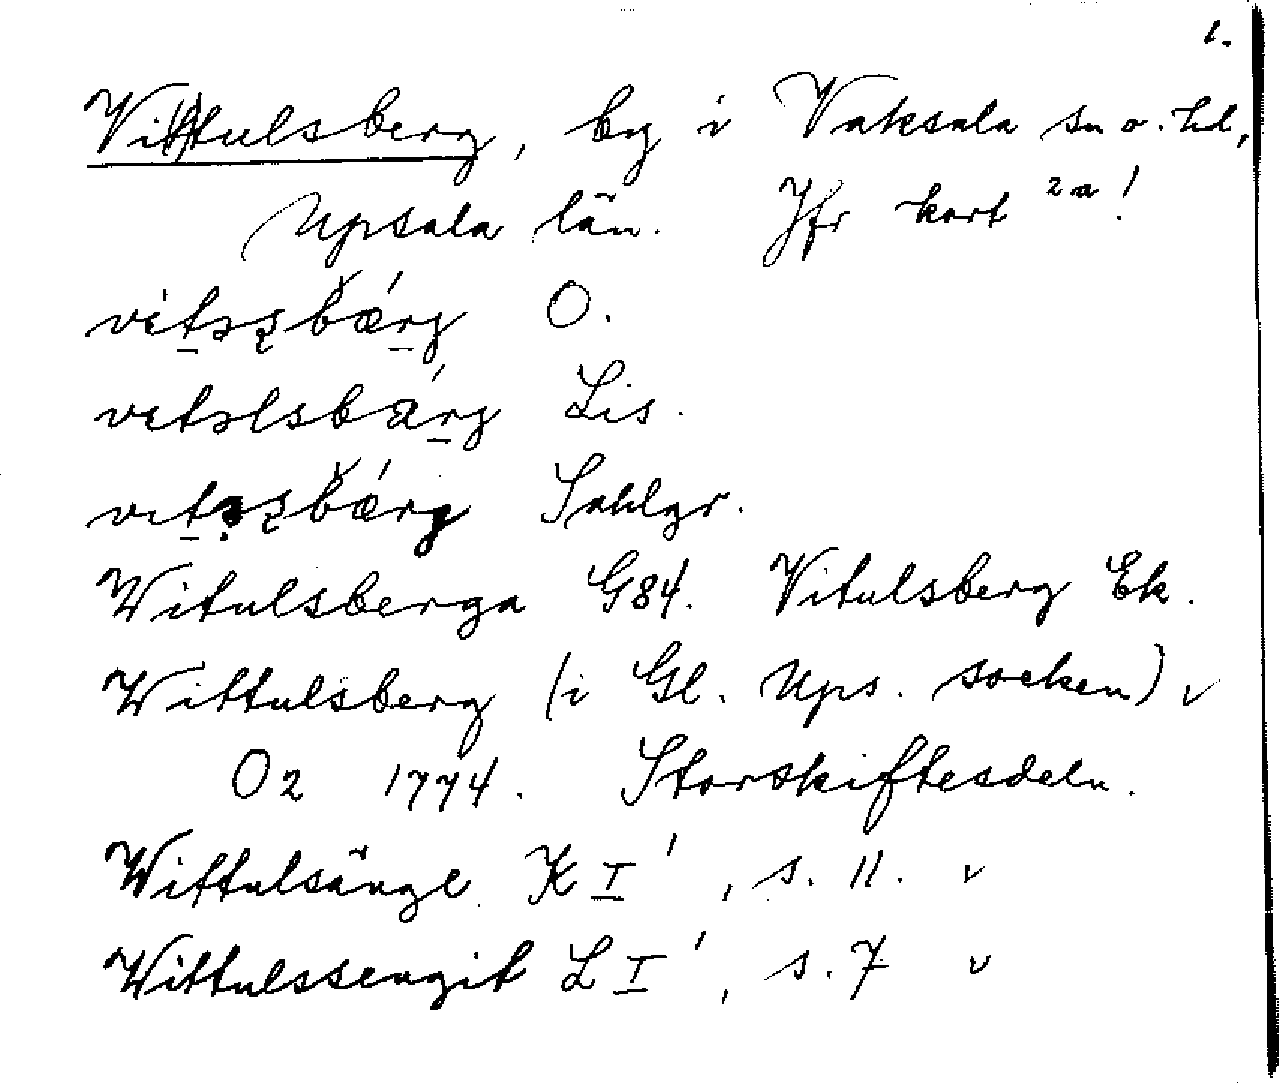 1.
Vittulsberg, by i Vaksala sn o. hd,
Upsala län. Jfr kort 2a!
O.
Lis.
Sahlgr.
Witulsberga G84. Vitulsberg Ek.
Wittulsberg (i Gl. Ups. socken) v
O2 1774. Storskiftesdeln.
Wittulsänge K I¹, s. 11. v
Wittulssengit L I¹, s. 7 v